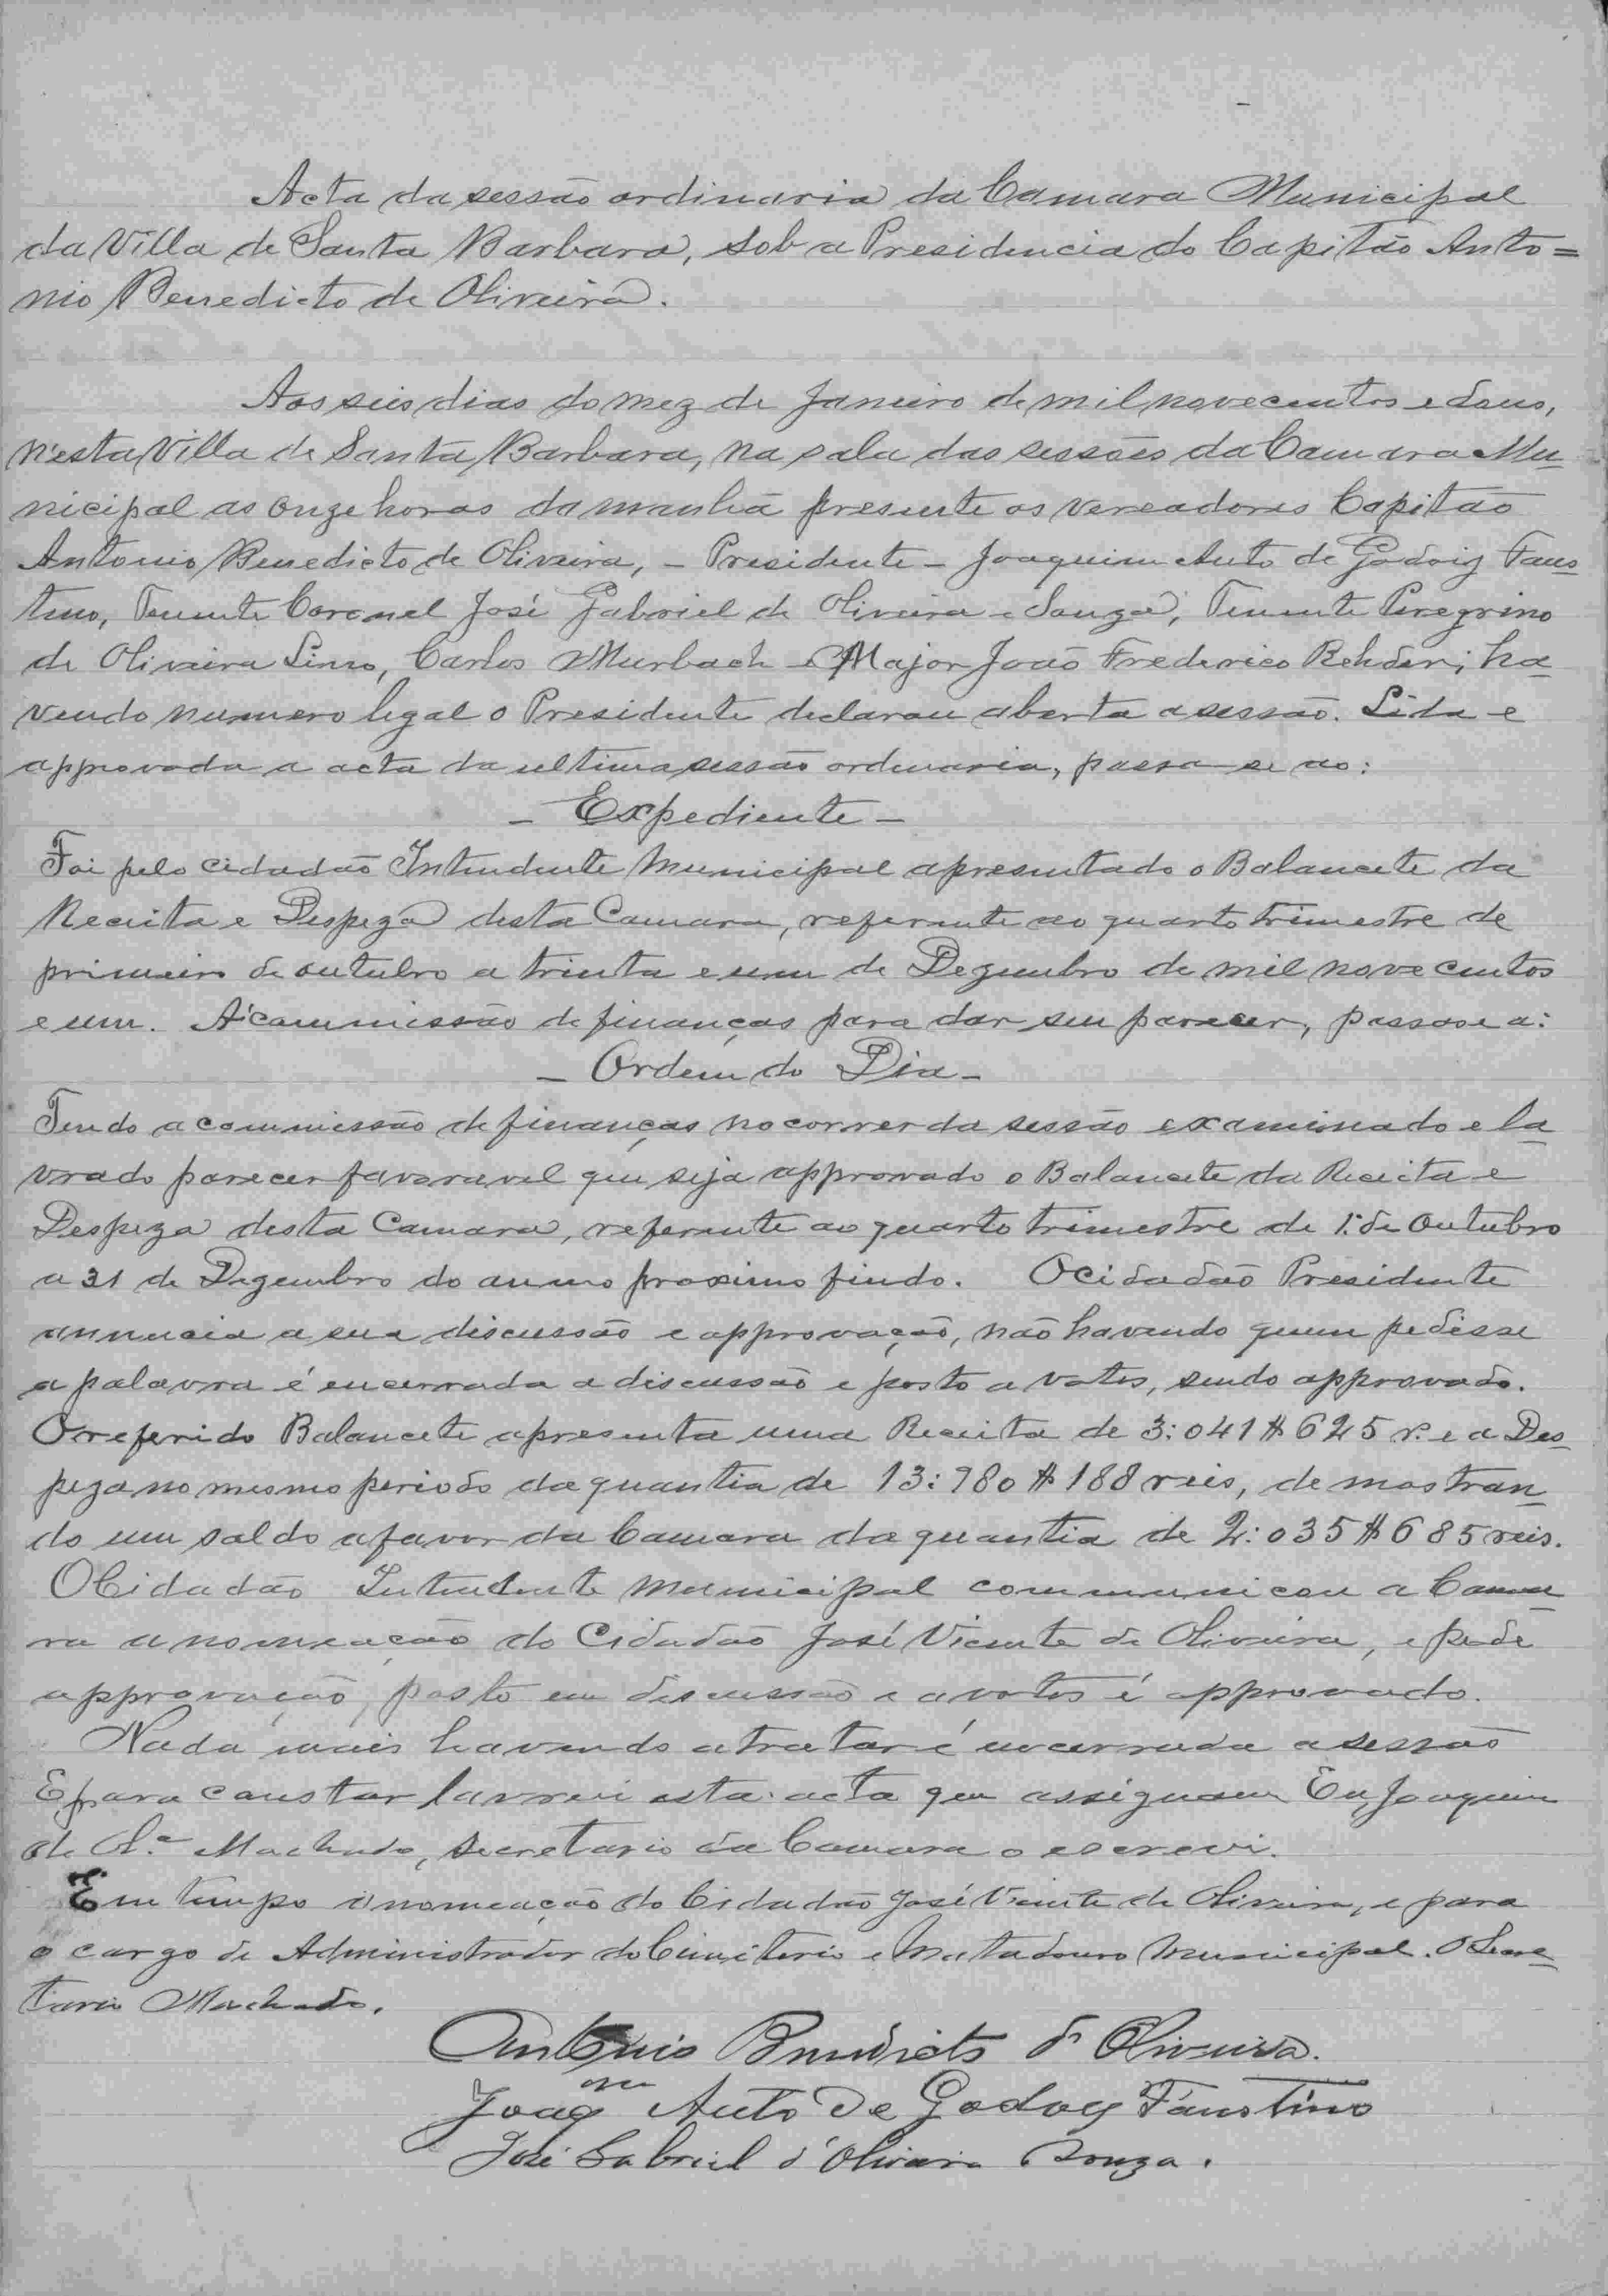 Acta da sessão ordinaria da Camara Municipal
da Villa de Santa Barbara, sob a Presidencia do Capitão Anto=
nio Benedicto de Oliveira.
Aos seis dias do mez de Janeiro de mil novecentos e dous,
n'esta Villa de Santa Barbara, na sala das sessões da Camara Mu-
nicipal as onze horas da manhã presente os vereadores Capitão
Antonio Benedicto de Oliveira, - Presidente - Joaquim Auto de Godoiy Faus-
tino, Tenente Coronel José Gabriel de Oliveira e Souza, Tenente Peregrino
de Oliveira Lino, Carlos Murbach e Major João Frederico Rehder; ha-
vendo numero legal o Presidente declarou aberta a sessão. Lida e
approvada a acta da ultima sessão ordinaria, passa-se ao:
- Expediente -
Foi pelo cidadão Intendente Municipal apresentado o Balancete da
Receita e Despeza desta Camara, referente ao quarto trimestre de
primeiro de outubro a trinta e um de Dezembro de mil novecentos
e um. A' commissão de finanças para dar seu parecer, passa se a:
- Ordem do Dia -
Tendo a commissão de finanças no correr da sessão examinado e la-
vrado parecer favoravel que seja approvado o Balancete da Receita e
Despeza desta Camara, referente ao quarto trimestre de 1.º de Outubro
a 31 de Dezembro do anno proximo findo. O cidadão Presidente
annuncia a sua discussão e approvação, não havendo quem pedisse
a palavra é encerrada a discussão e posto a votos, sendo approvado.
O referido Balancete apresenta uma Receita de 3:041$625 r.s e a Des-
peza no mesmo periodo da quantia de 13:980$188 reis, demostran-
do um saldo a favor da Camara da quantia de 2:035$685 reis.
O Cidadão Intendente Municipal communicou a Cama-
ra a nomeação do Cidadão José Vicente de Oliveira, e pede
approvação, posto em discussão e a votos é approvado.
Nada mais havendo a tratar é encerrada a sessão
E para constar lavrei esta acta que assignam Eu Joaquim
de Ol.ª Machado, secretario da Camara o escrevi.
Em tempo a nomeação do Cidadão José Vicente de Oliveira, é para
o cargo de Administrador do Cimiterio e Matadouro Municipal. O Secre-
tario Machado.
Antonio Benedicto d' Oliveira.
Joaq.m Auto de Godoy Faustino
José Gabriel d'Oliveira Souza.